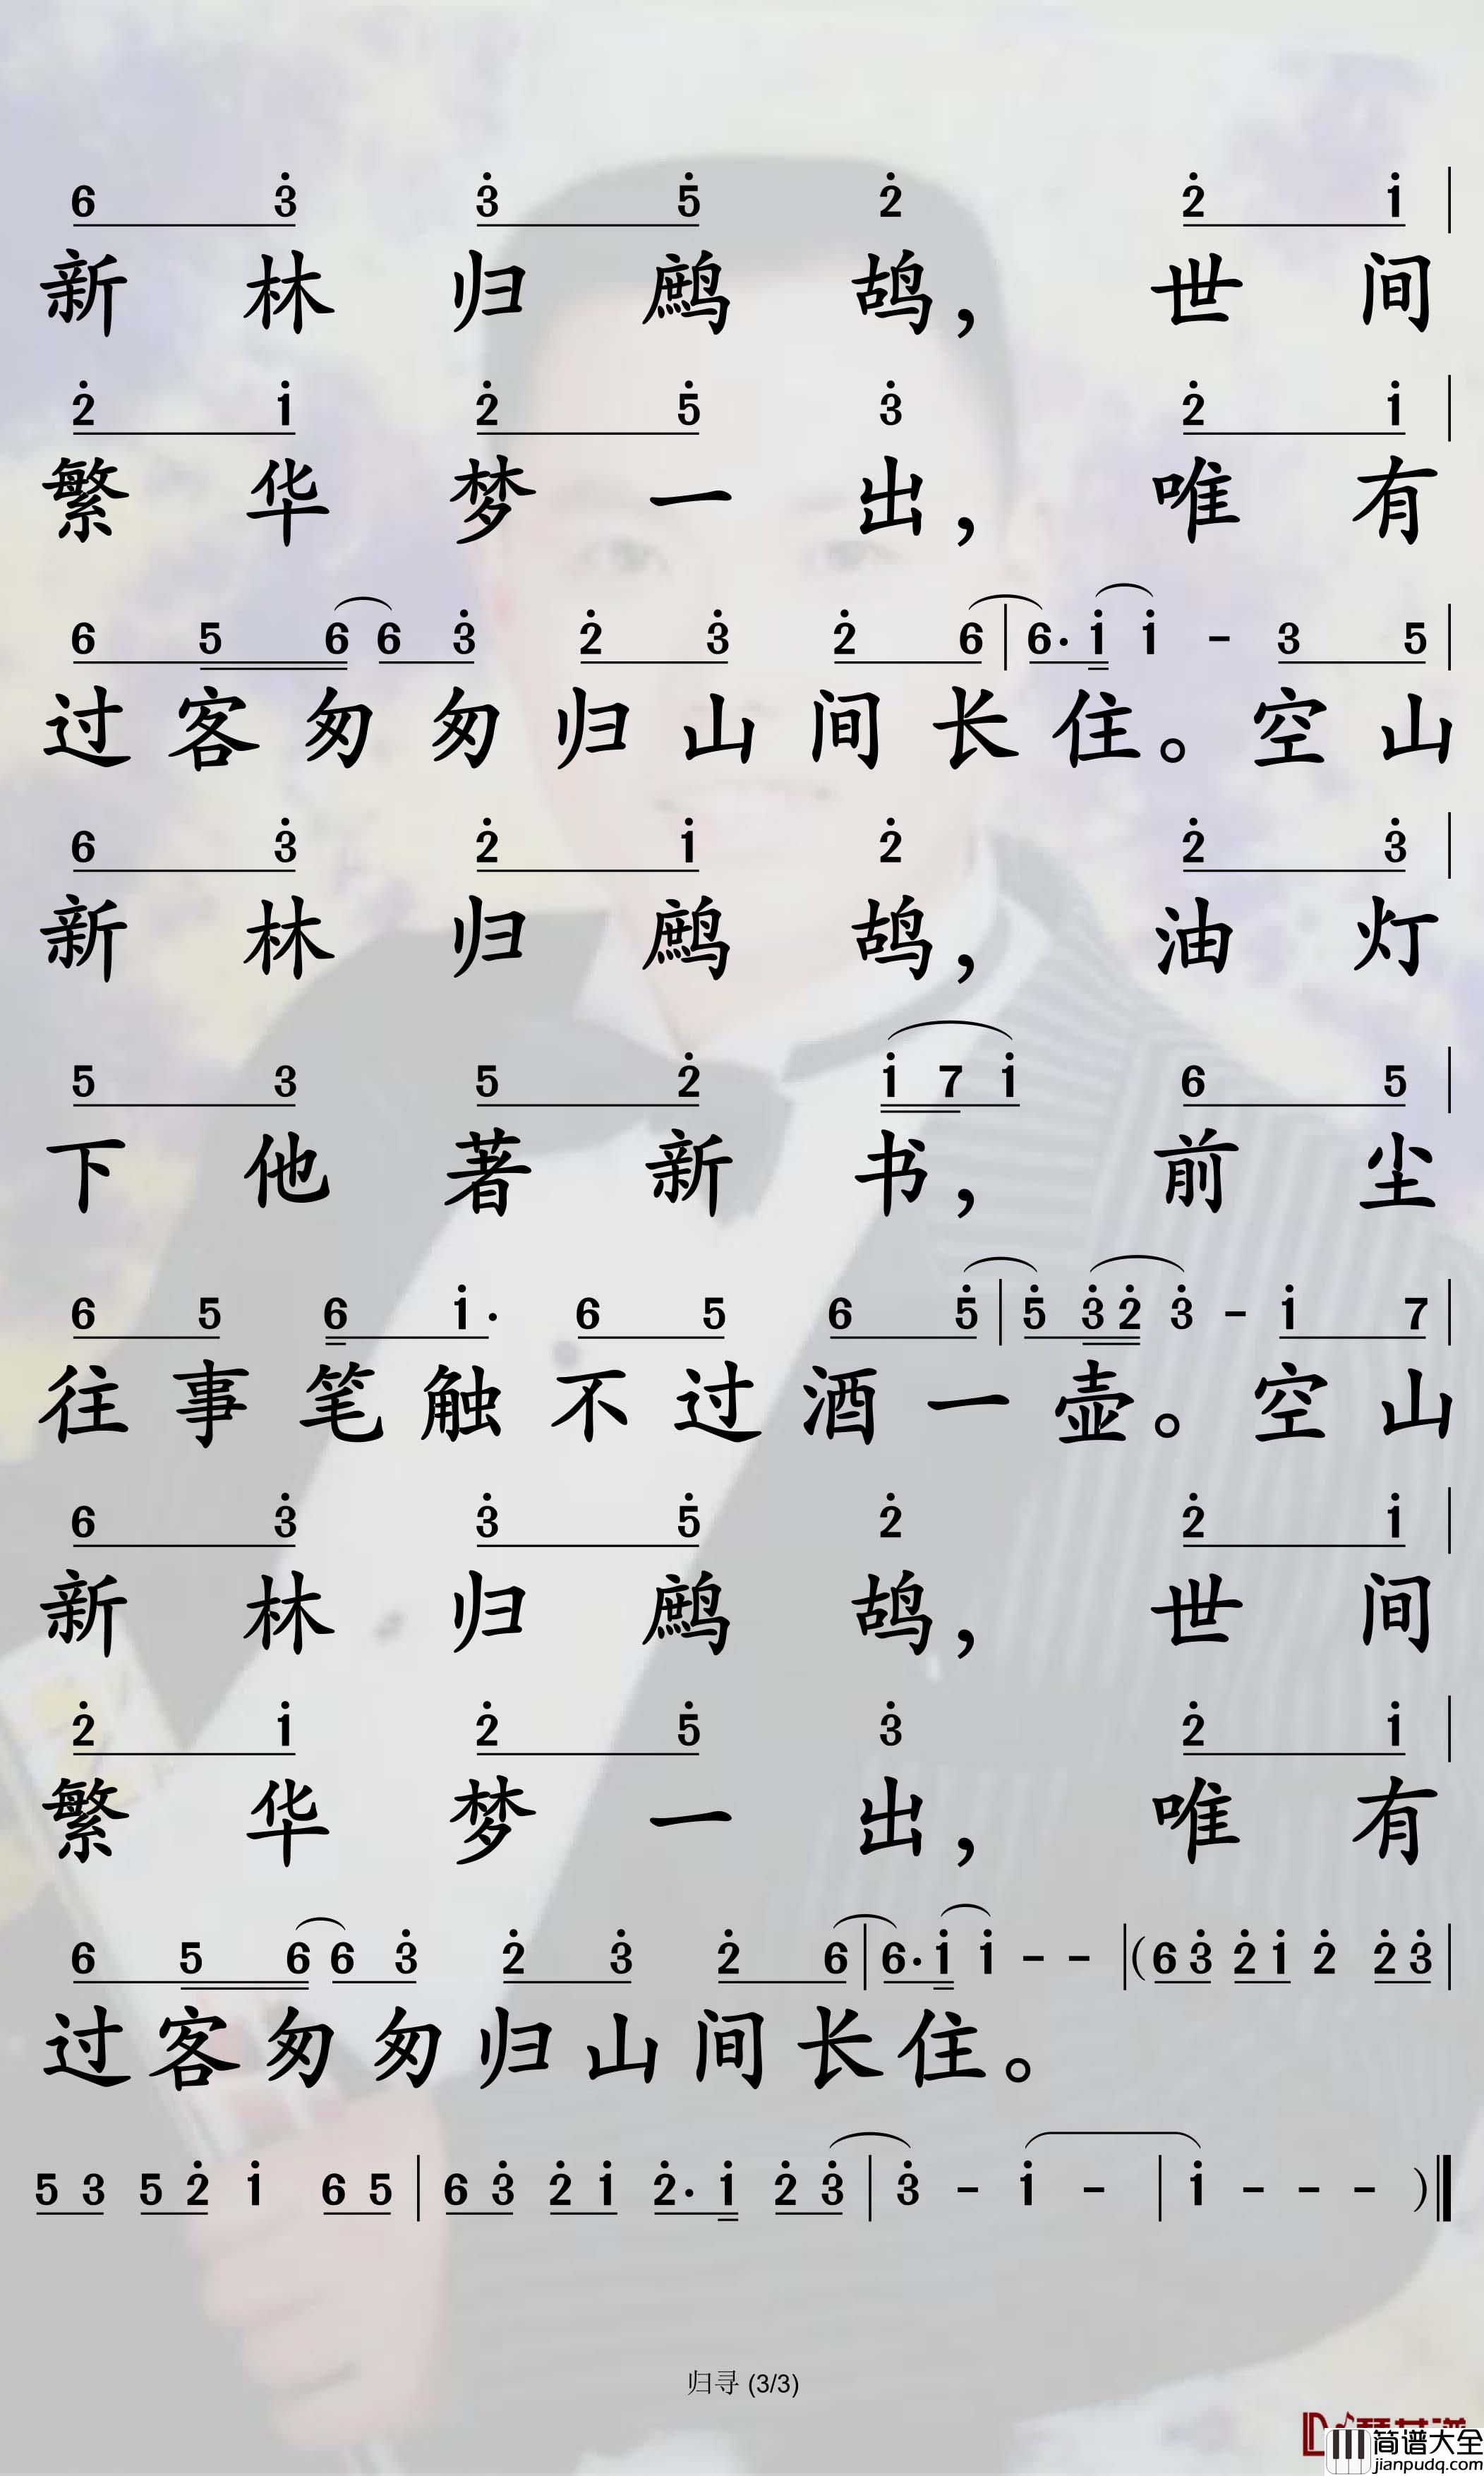 6 3̇ 3̇ 5̇ 2̇ 2̇ 1̇ |
新林归鹧鸪，世间
2̇ 1̇ 2̇ 5̇ 3̇ 2̇ 1̇ |
繁华梦一出，唯有
6 5 6 6 3̇ 2̇ 3̇ 2̇ 6 | 6· 1̇ 1̇ - 3 5 |
过客匆匆归山间长住。空山
6 3̇ 2̇ 1̇ 2̇ 2̇ 3̇ |
新林归鹧鸪，油灯
5 3 5 2̇ 1̇ 7 1̇ 6 5 |
下他著新书，前尘
6 5 6 1̇· 6 5 6 5̇ | 5̇ 3̇ 2̇ 3̇ - 1̇ 7 |
往事笔触不过酒一壶。空山
6 3̇ 3̇ 5̇ 2̇ 2̇ 1̇ |
新林归鹧鸪，世间
2̇ 1̇ 2̇ 5̇ 3̇ 2̇ 1̇ |
繁华梦一出，唯有
6 5 6 6 3̇ 2̇ 3̇ 2̇ 6 | 6· 1̇ 1̇ - - | (6 3̇ 2̇ 1̇ 2̇ 2̇ 3̇ |
过客匆匆归山间长住。
5 3 5 2̇ 1̇ 6 5 | 6 3̇ 2̇ 1̇ 2̇· 1̇ 2̇ 3̇ | 3̇ - 1̇ - | 1̇ - - - )‖
归寻 (3/3)
简谱大全
jianpudq.com